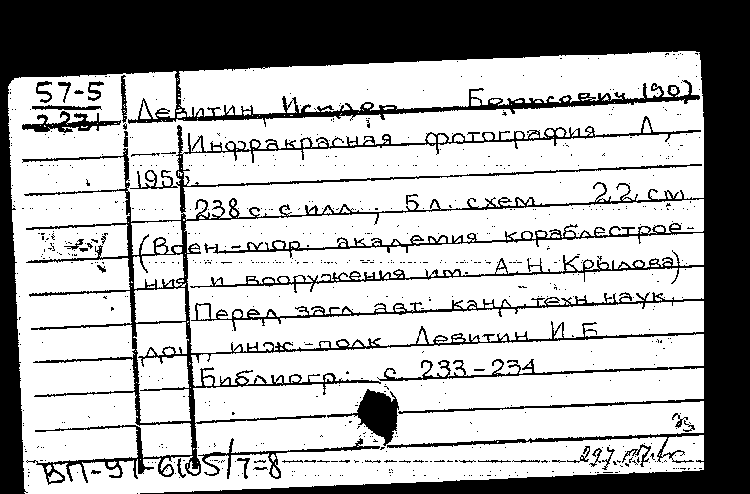 57-5
2231
Левитин, Исидор Борисович, 1907
Инфракрасная фотография Л.,
1955.
238 с. с илл.; 5 л. схем. 22 см
(Воен.-мор. академия кораблестрое-
ния и вооружения им. А. Н. Крылова)
Перед загл. авт.: канд. техн. наук,
доц., инж.-полк Левитин И. Б
Библиогр.: с. 233-234
ВП-91-6105/7-8